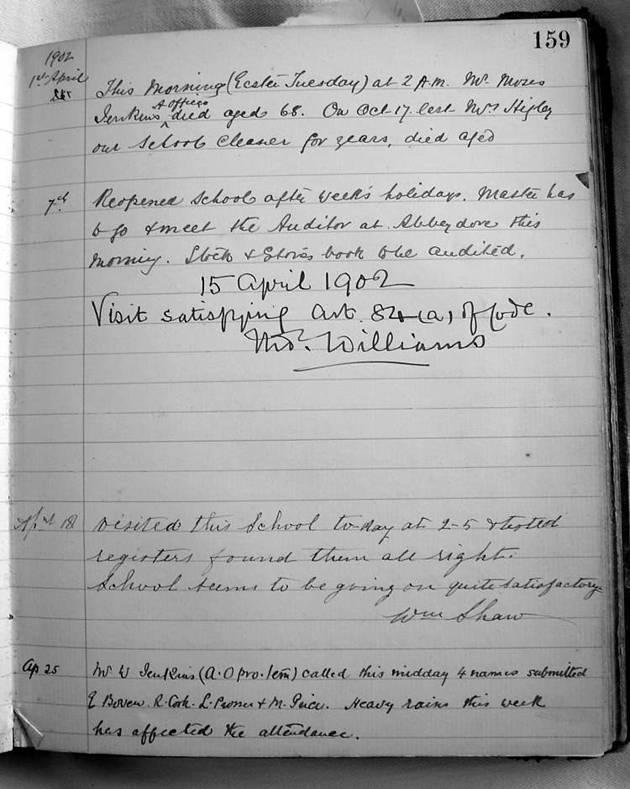 159
1902
1st April This Morning (Easter Tuesday) at 2 A.M. Mr. Moses
Jenkins A. officer died aged 68. On Oct 17. last Mrs Higley
our School Cleaner for years, died aged
7th Reopened School after week's holidays. Master has
to go & meet the Auditor at Abbeydore this
morning. Stock & Stores book to be audited.
15 April 1902
Visit satisfying Art. 84 (a) of Code.
Thos. Williams
April 18 Visited this School to-day at 2-5 & tested
registers found them all right.
School seems to be going on quite satisfactory
Wm Shaw
Ap 25 Mr W Jenkins (A.O pro. tem) called this midday 4 names submitted
E Bowen. R. Cook. L. Prosser & M. Price. Heavy rains this week
has affected the attendance.